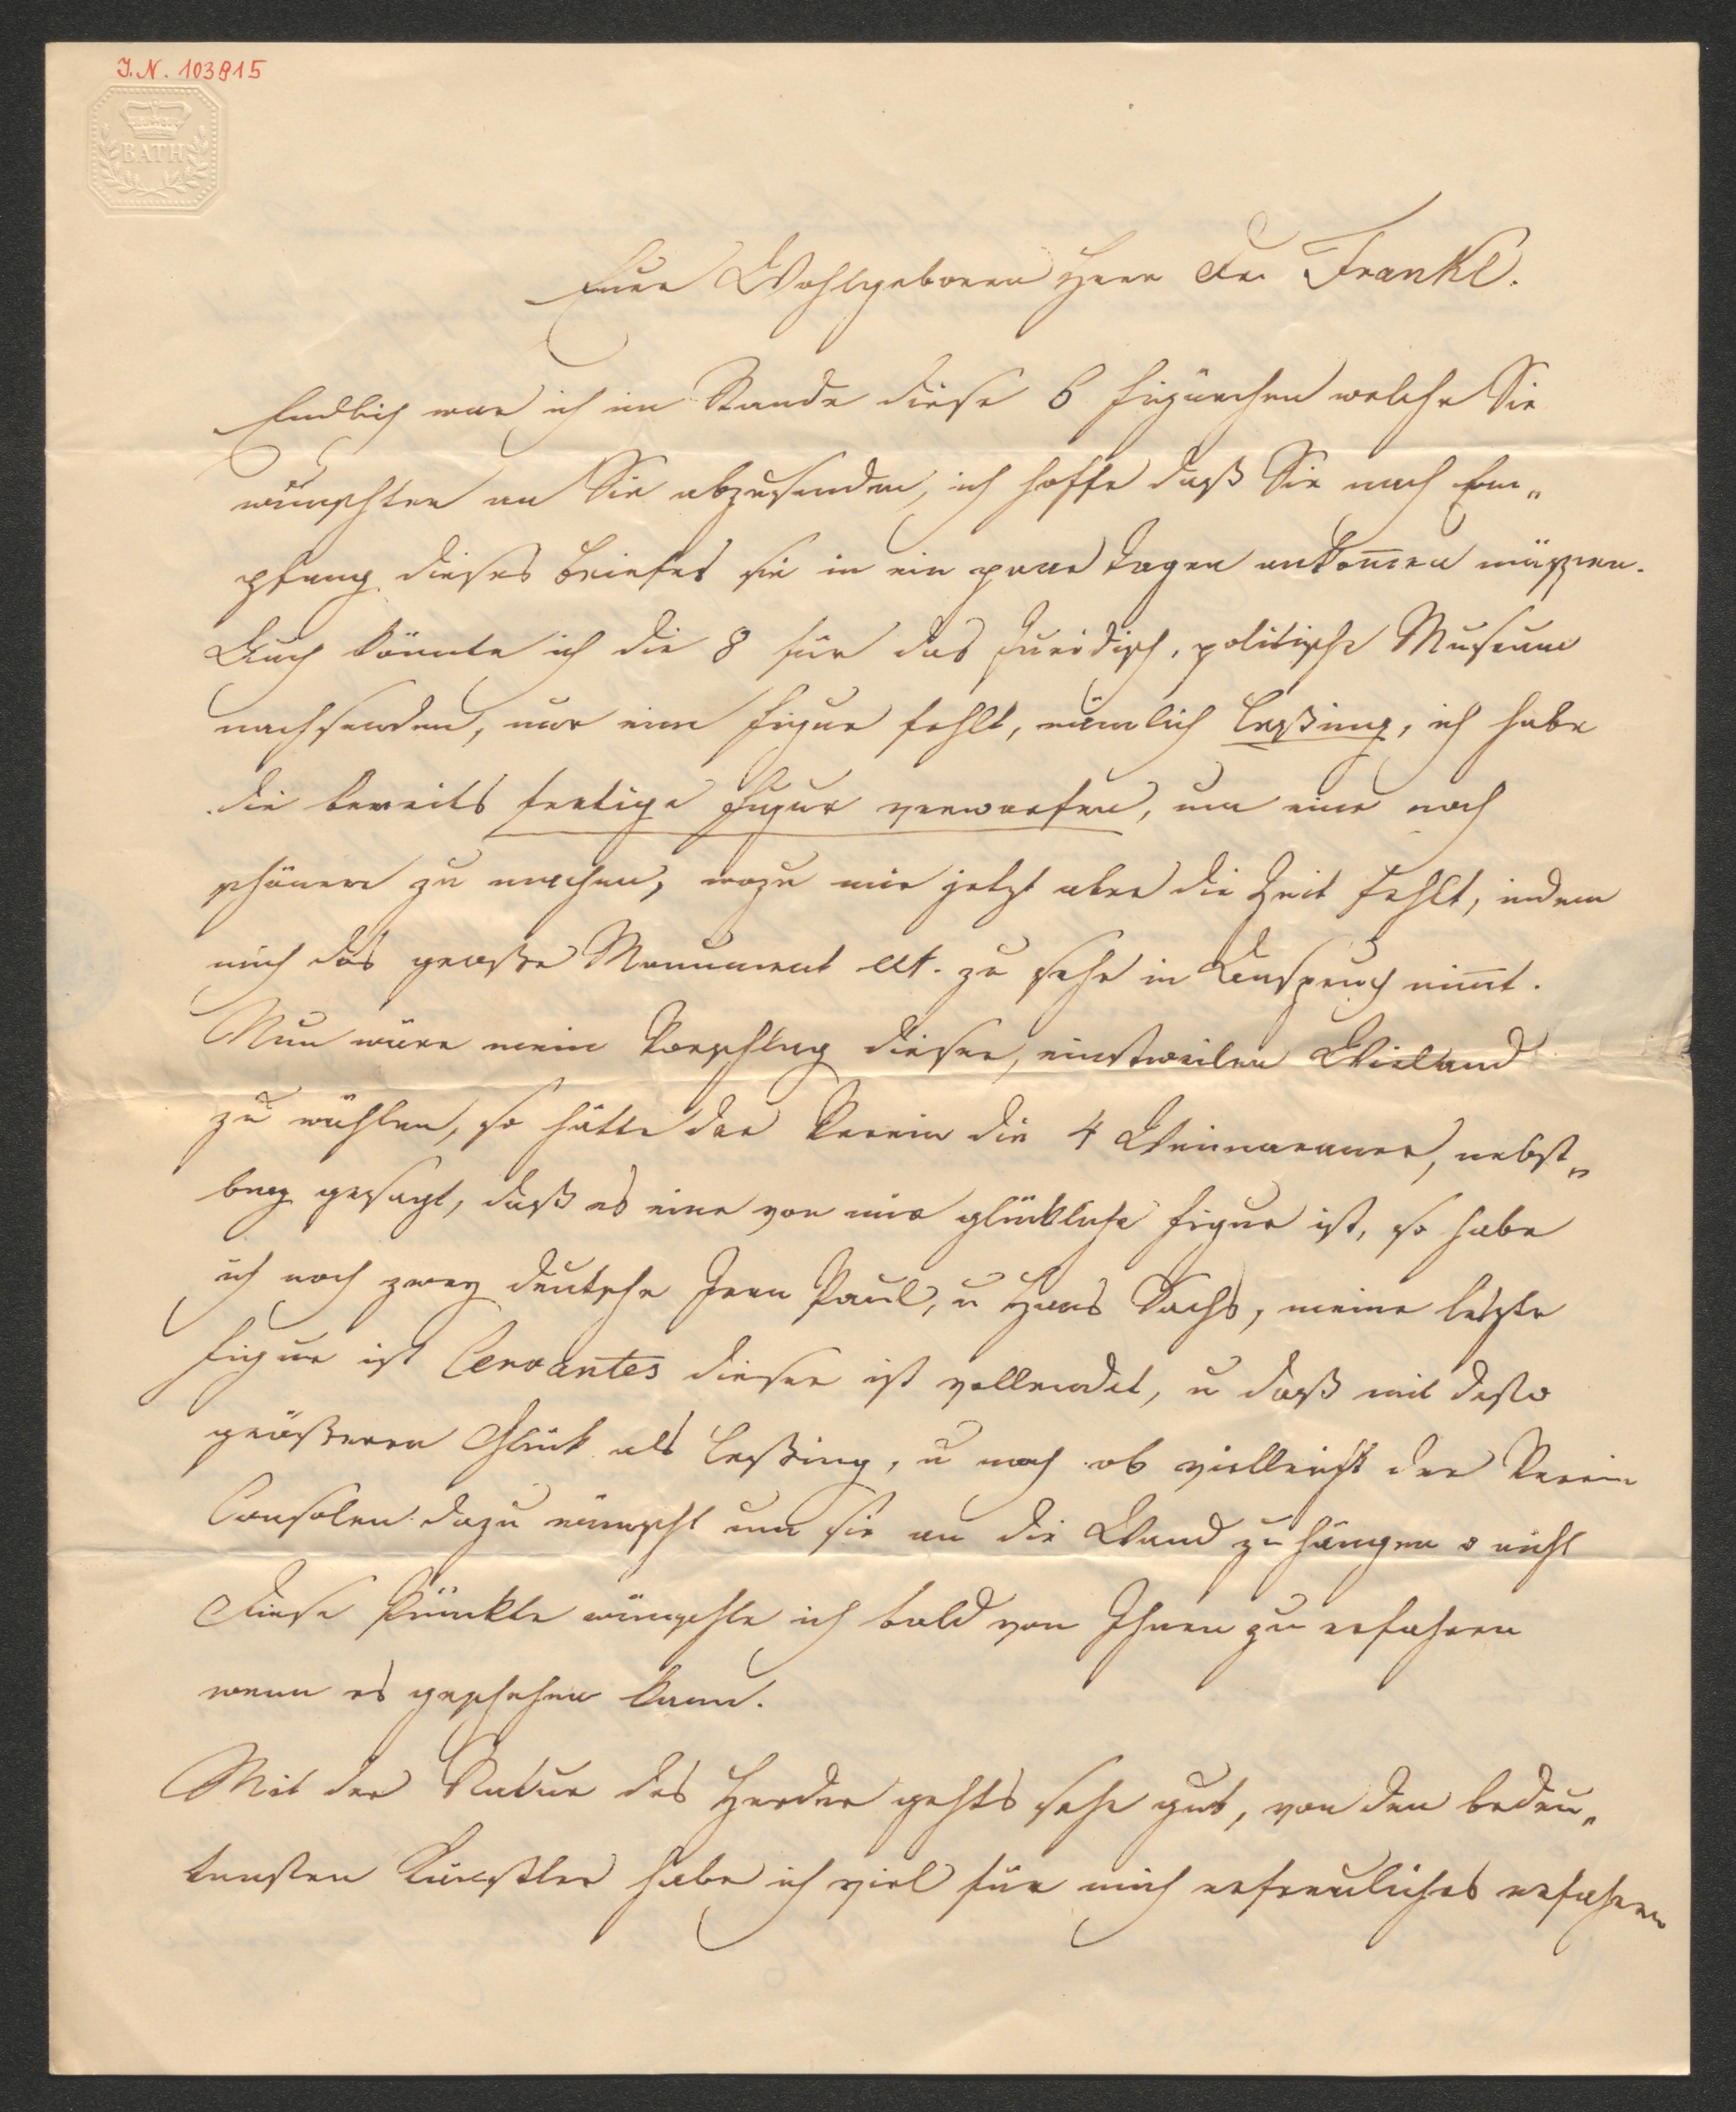 I.N. 103815
BATH
Euer Wohlgeboren Herr Dr. Frankl.
Endlich war ich im Stande diese 6 Figürchen welche Sie
wünschten an Sie abzusenden, ich hoffe daß Sie nach Em„
pfang dieses Briefes sie in ein paar Tagen ankom̅en müssen.
Auch könnte ich die 8 für das Juridisch, politische Museum
nachsenden, nur eine Figur fehlt, nämlich Leßing, ich habe
die bereits fertige Figur verworfen, um eine noch
schönere zu machen, wozu mir jetzt aber die Zeit fehlt, indem
mich das große Monument ett. zu sehr in Anspruch nim̅t.
Nun wäre mein Vorschlag dieser, einstweilen Wieland
zu wählen, so hätte der Verein die 4 Weimaraner, nebst„
bey gesagt, daß es eine von mir glückliche Figur ist, so habe
ich noch zwey deutsche Jean Paul, u Hans Sachs, meine letzte
Figur ist Cervantes dieser ist vollendet, u daß mit desto
größeren Glück als Leßing, u noch ob vielleicht der Verein
Consolen dazu wünscht um sie an die Wand zu hängen o nicht
Diese Punkte wünschte ich bald von Ihnen zu erfahren
wenn es geschehen kann.
Mit der Statue des Herder gehts sehr gut, von den bedeu„
tensten Künstler habe ich viel für mich erfreuliches erfahren